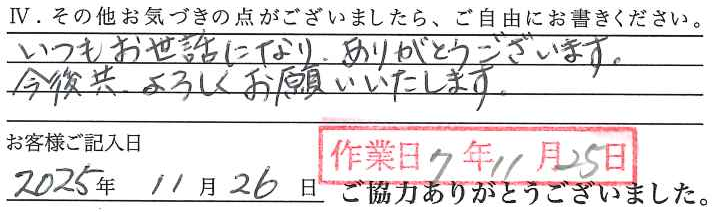 Ⅳ．その他お気づきの点がございましたら、ご自由にお書きください。
いつもお世話になり、ありがとうございます。
今後共、よろしくお願いいたします。
お客様ご記入日
作業日 7 年 11 月 25 日
2025 年 11 月 26 日
ご協力ありがとうございました。